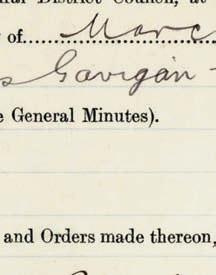 ral District Council, at
y of........Marc
s Gavigan -
e General Minutes).
and Orders made thereon,